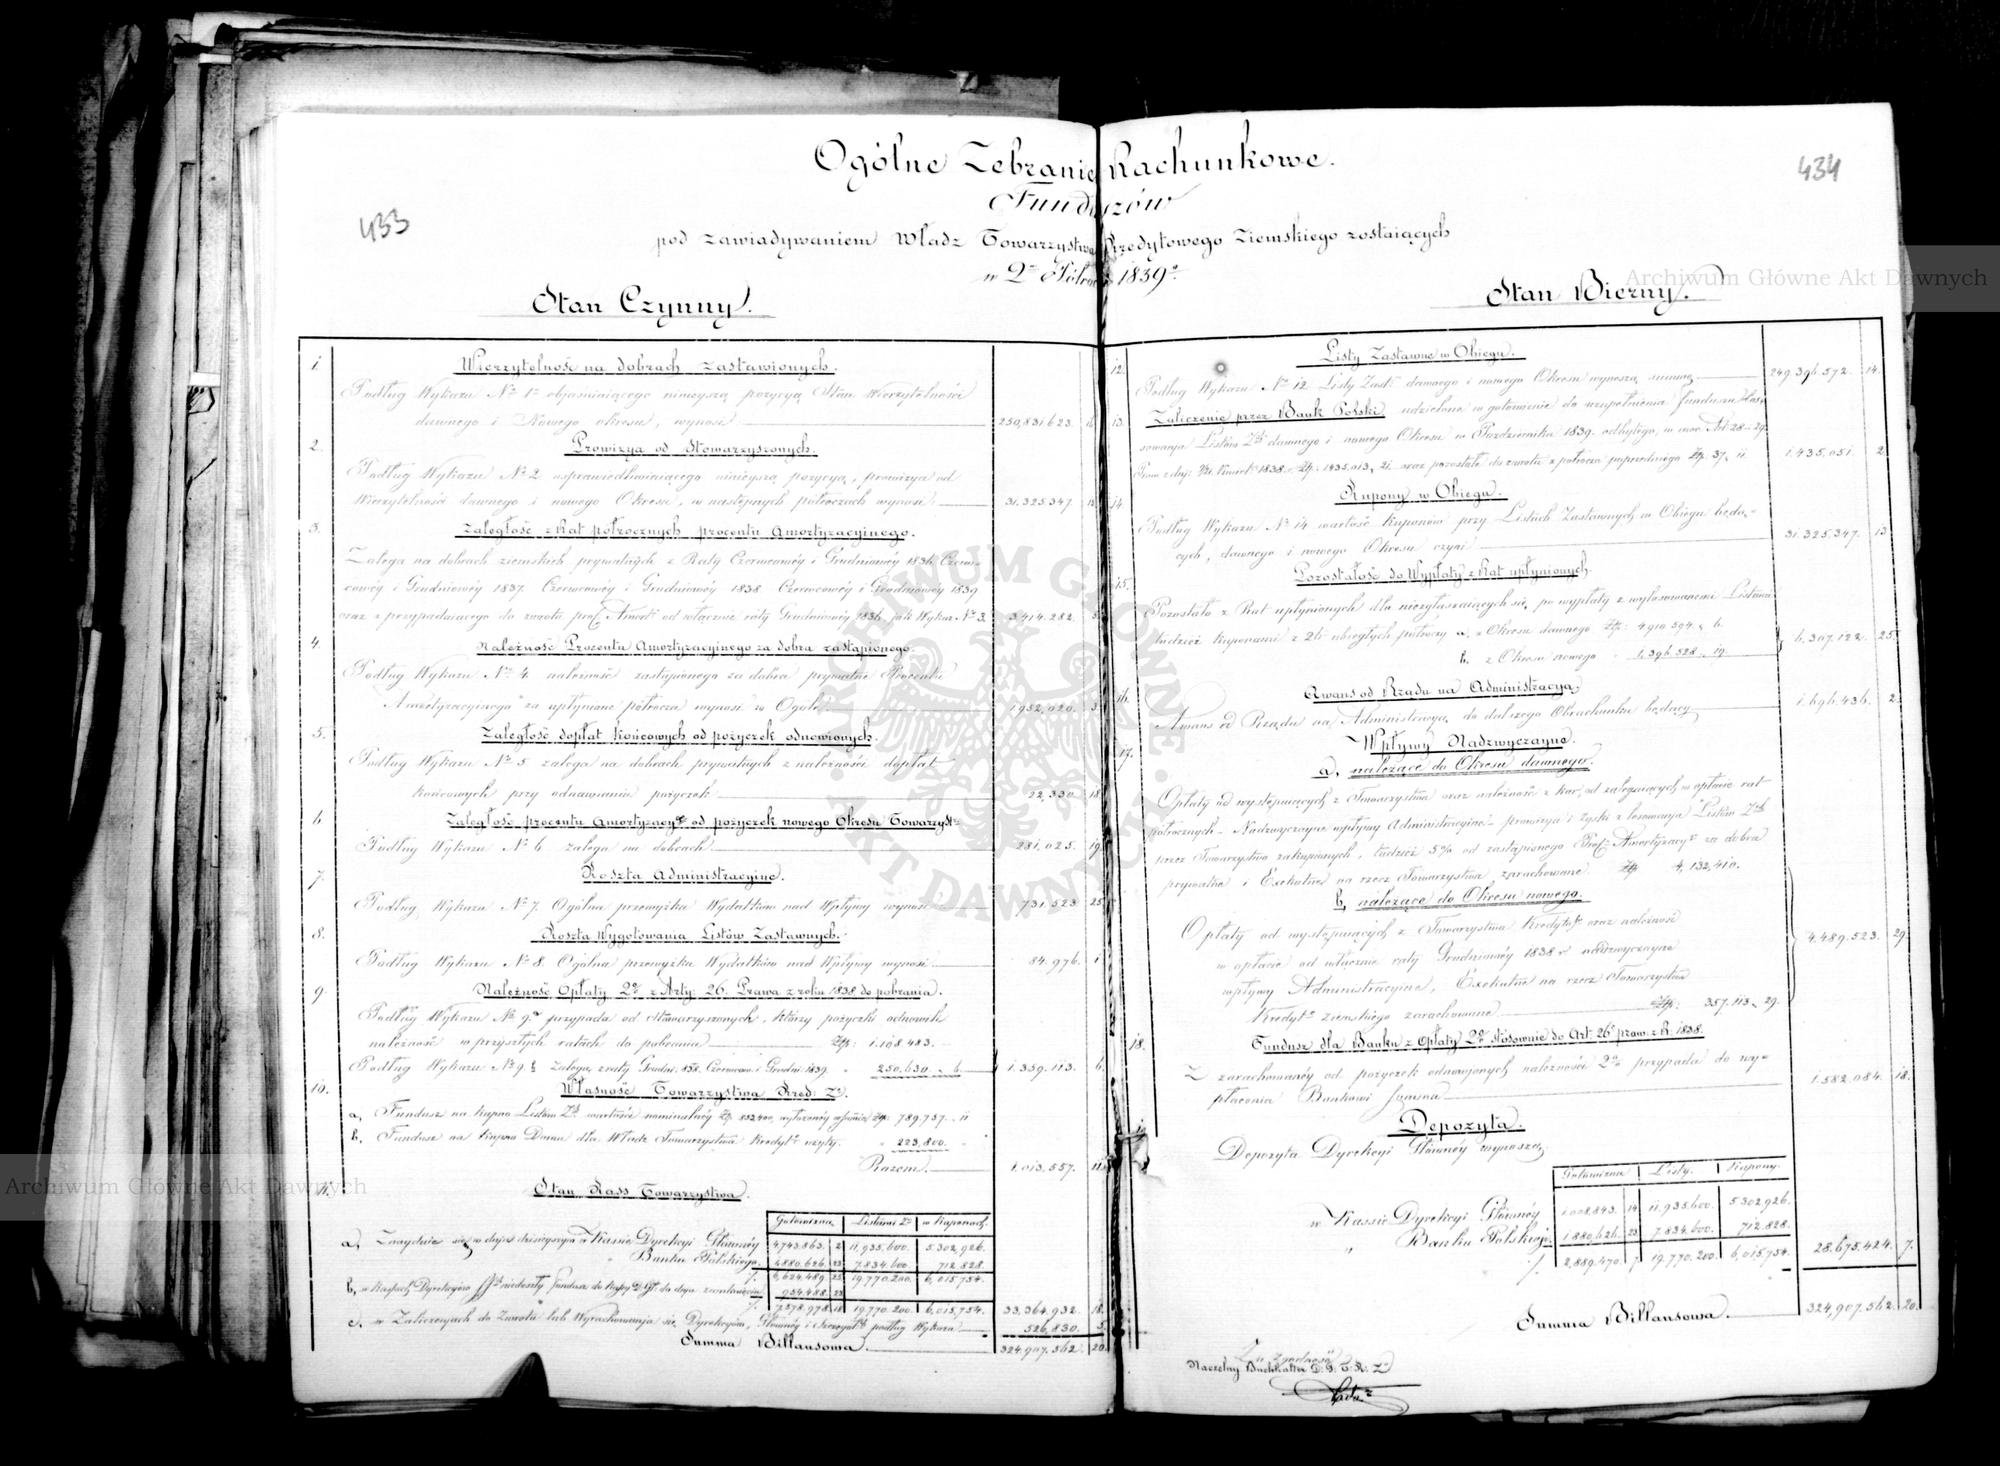 Ogólne Zebranie Rachunkowe.
Funduszów
pod zawiadywaniem Władz Towarzystwa Kredytowego Ziemskiego zostaiących
w 2m Półroczu 1839o
433
434
Stan Czynny.
1. Wierzytelność na dobrach zastawionych.
Podług Wykazu No 1o objaśniaiącego ninieyszą pozycyą Stan Wierzytelności
dawnego i Nowego okresu, wynosi 250,831,623.
2. Prowizya od Stowarzyszonych.
Podług Wykazu No 2 usprawiedliwiaiącego ninieyszą pozycyą, prowizya od
Wierzytelności dawnego i nowego Okresu, w następnych półroczach wynosi 31.325.347.
3. Zaległość z Rat półrocznych procentu Amortyzacyinego.
Zalega na dobrach ziemskich prywatnych z Raty Czerwcowéy i Grudniowéy 1836 Czerw-
cowéy i Grudniowéy 1837. Czerwcowéy i Grudniowéy 1838 Czerwcowéy i Grudniowéy 1839
oraz z przypadaiącego do zwrotu Amort od włącznie raty Grudniowéy 1836, No 3. 3,414.282. 5.
4. Należność Procentu Amortyzacyinego za dobra zastąpionego.
Podług Wykazu No 4 należność zastąpionego za dobra prywatne Procentu
Amortyzacyinego za upłynione półrocza wynosi w Ogóle 1,952,020. 3.
5. Zaległość dopłat Końcowych od pożyczek odnowionych.
Podług Wykazu No 5 zalega na dobrach prywatnych z należności dopłat
końcowych przy odnawianiu pożyczek 22,330. 18.
6. Zaległość procentu Amortyzacygo od pożyczek nowego Okresu Towarzystwa
Podług Wykazu No 6 zalega na dobrach 281,025. 19.
7. Koszta Administracyine.
Podług Wykazu No 7. Ogólna przewyżka Wydatków nad Wpływy wynosi 731.523 25.
8. Koszta Wygotowania Listów Zastawnych.
Podług Wykazu No 8. Ogólna przewyżka Wydatków nad Wpływy wynosi 84.976. 1.
9. Należność Opłaty 2% z Arty: 26. Prawa z roku 1838 do pobrania.
Podług Wykazu No 9. przypada od Stowarzyszonych, którzy pożyczki odnowili
należność w przyszłych ratach do pobrania Złp: 1.108.483.
Podług Wykazu No 9. b Zalega z raty Grudni: 838. Czerwcow. i Grudni: 1839. 250.630 6. 1.359.113. 6.
10. Własność Towarzystwa Kred: Zo.
a, Fundusz na kupno Listów wartości nominalnéy Złp 852400, Złp. 789.757. 11
b, Fundusz na kupno Domu dla Władz Towarzystwa Kredyto użyty. 223,800.
Razem. 1.013,557. 11.
11. Stan Kass Towarzystwa.
Gotowizna Listami Zo w Kuponach.
a, Znayduie się w dniu dzisieyszym w Kassie Dyrekcyi Głównéy 4,743.863. 2 11,935,600. 5.302,926.
" Banku Polskiego. 1,880.626. 23 7,834,600. 712,828.
6,624,489. 25 19,770.200. 6,015,754.
b, w Kassach Dyrekcyów 954,488. 23
7,578,978. 18 19,770.200. 6,015,754. 33,364,932. 18.
c, w Zaliczeniach do Zwrotu lub Wyrachowania się Dyrekcyów, Głównéy i Szczegółch podług Wykazu 526,830. 5.
Summa Billansowa. 324,907,562. 20.
Stan Bierny.
12. Listy Zastawne w Obiegu.
Podług Wykazu No 12. Listy Zast: dawnego i nowego Okresu wynoszą summę 249.396.572. 14.
13. Zaliczenie przez Bank Polski udzielone w gotowiznie do uzupełnienia funduszu
Listów Zch dawnego i nowego Okresu w Październiku 1839. odbytego, w moc Art 28 i 29.
1838 Złp: 1435,013, 21. oraz pozostałe do zwrotu z półrocza poprzedniego Złp. 37, 11. 1,435,051. 2.
14. Kupony w Obiegu.
Podług Wykazu No 14 wartość kuponów przy Listach Zastawnych w Obiegu będą-
cych, dawnego i nowego Okresu czyni 31.325.347. 13
15. Pozostałość do Wypłaty z Rat upłynionych.
Pozostało z Rat upłynionych dla niezgłaszaiących się, po wypłaty z wylosowanemi Listami
tudzież kuponami z 26 ubiegłych półroczy a, z Okresu dawnego Złp: 4910.594. 6.
b. z Okresu nowego 1,396.528. 19. 6,307.122. 25.
16. Awans od Rządu na Administracyą
Awans od Rządu na Administracyą do dalszego Obrachunku będący 1.696,436. 2.
17. Wpływy Nadzwyczayne.
a, należące do Okresu dawnego.
Opłaty od występuiących z Towarzystwa oraz należność z kar, od zalegaiących w opłacie rat
półrocznych - Nadzwyczayne wpływy Administracyine - prowizya i zyski z losowania Listów Zch
przez Towarzystwo zakupionych, tudzież 5% od zastąpionego Amortyzacygo za dobra
prywatne i Exekutne na rzecz Towarzystwa zarachowane. Złp 4,132,410.
b, należące do Okresu nowego.
Opłaty od występuiących z Towarzystwa Kredyto oraz należność
w opłacie od włącznie raty Grudniowéy 1838 r. nadzwyczayne
wpływy Administracyine, Exekutne na rzecz Towarzystwa
Kredyto Ziemskiego zarachowane Złp: 357.113, 29. 4.489.523. 29.
18. Fundusz dla Banku z Opłaty 2% stosownie do Art: 26 praw: z R: 1838.
Z zarachowanéy od pożyczek odnowionych należności 2% przypada do wy-
płacenia Bankowi Summa 1.582.084. 18.
Depozyta.
Depozyta Dyrekcyi Głównéy wynoszą.
Gotowizna Listy. Kupony.
w Kassie Dyrekcyi Głównéy 1.008,843. 14 11,935,600. 5.302,926.
" Banku Polskiego. 1,880,626. 23 7,834,600. 712,828.
2,889,470. 7 19,770.200. 6,015,754. 28.675.424. 7.
Summa Billansowa. 324,907,562. 20.
Za Zgodność
Naczelny Buchhalter D. G. T. K. Zo
Archiwum Główne Akt Dawnych
Archiwum Główne Akt Dawnych
ARCHIWUM GŁÓWNE AKT DAWNYCH